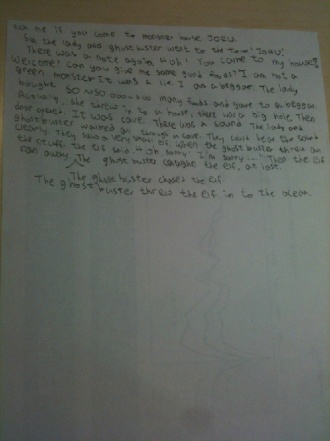 me if you come to monster house Joeu.
So the lady and ghostbuster went to the town "Joeu".
There was a note again. "Huh! You came to my house?
Welcome! Can you give me some good foods? I am not a
green monster. It was a lie. I am a beggar. The lady
bought so many foods and gave to a beggar.
Actually, she threw it to a house, there was a big hole. Then
door opened. It was cave. There was a sound. The lady and
ghostbuster walked through a cave. They could hear the sound
clearly. They saw a very small elf. When the ghostbuster threw an
the stuff, the elf said, "Oh sorry. I'm sorry..." Then the elf
ran away. The ghostbuster caught the elf, at last.
The ghostbuster chased the elf.
The ghostbuster threw the elf in to the ocean